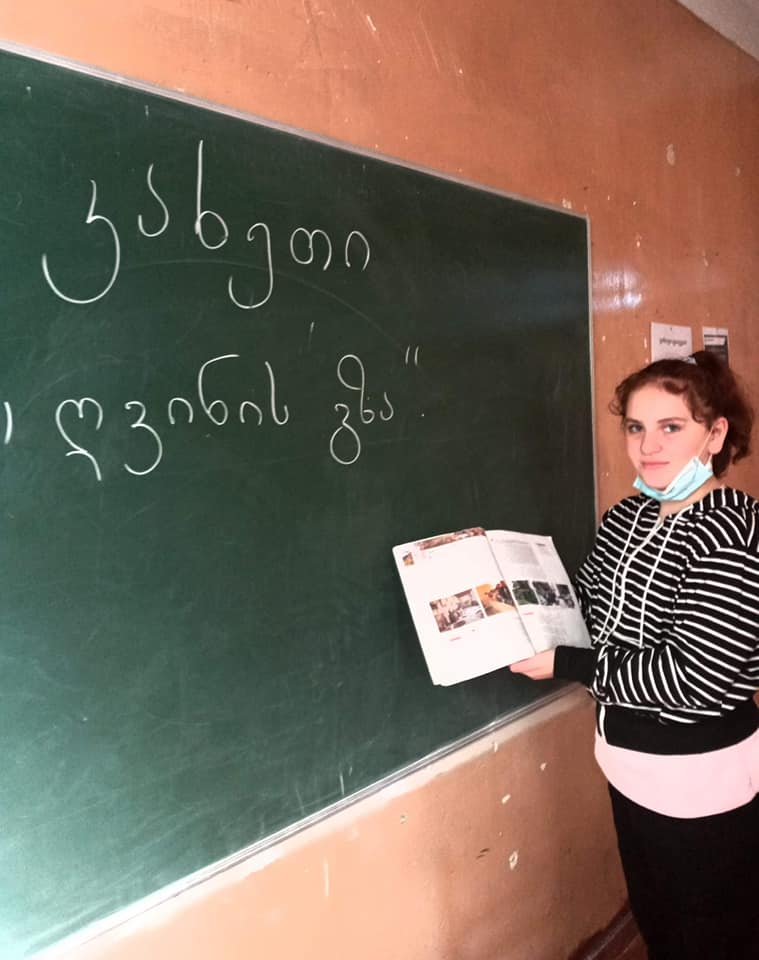 კახეთი
" ღვინის გზა ".